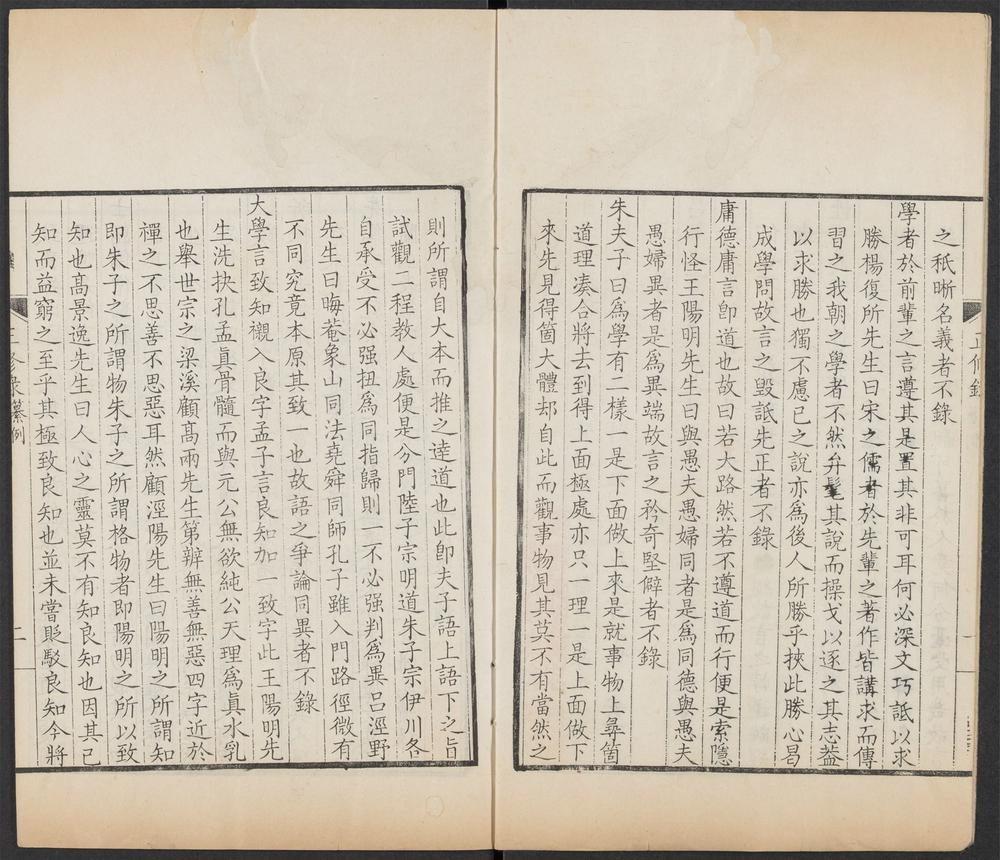 之秖晰名義者不錄
學者於前輩之言遵其是置其非可耳何必深文巧詆以求
勝楊復所先生曰宋之儒者於先輩之著作皆講求而傳
習之我朝之學者不然弁髦其說而操戈以逐之其志益
以求勝也獨不慮已之說亦為後人所勝乎挾此勝心曷
成學問故言之毀詆先正者不錄
庸德庸言卽道也故曰若大路然若不遵道而行便是索隱
行怪王陽明先生曰與愚夫愚婦同者是爲同德與愚夫
愚婦異者是爲異端故言之矜奇堅僻者不錄
朱夫子曰爲學有二樣一是下面做上來是就事物上尋箇
道理湊合將去到得上面極處亦只一理一是上面做下
來先見得箇大體却自此而觀事物見其莫不有當然之
則所謂自大本而推之逹道也此卽夫子語上語下之旨
試觀二程教人處便是分門陸子宗明道朱子宗伊川各
自承受不必强扭爲同指歸則一不必强判爲異呂涇野
先生曰晦菴象山同法堯舜同師孔子雖入門路徑微有
不同究竟本原其致一也故語之爭論同異者不錄
大學言致知襯入良字孟子言良知加一致字此王陽明先
生洗抉孔孟眞骨髓而與元公無欲純公天理爲眞水乳
也舉世宗之梁溪顧髙兩先生第辨無善無惡四字近於
禪之不思善不思惡耳然顧涇陽先生曰陽明之所謂知
卽朱子之所謂物朱子之所謂格物者卽陽明之所以致
知也髙景逸先生曰人心之靈莫不有知良知也因其已
知而益窮之至乎其極致良知也並未嘗貶駁良知今將
纂例
二